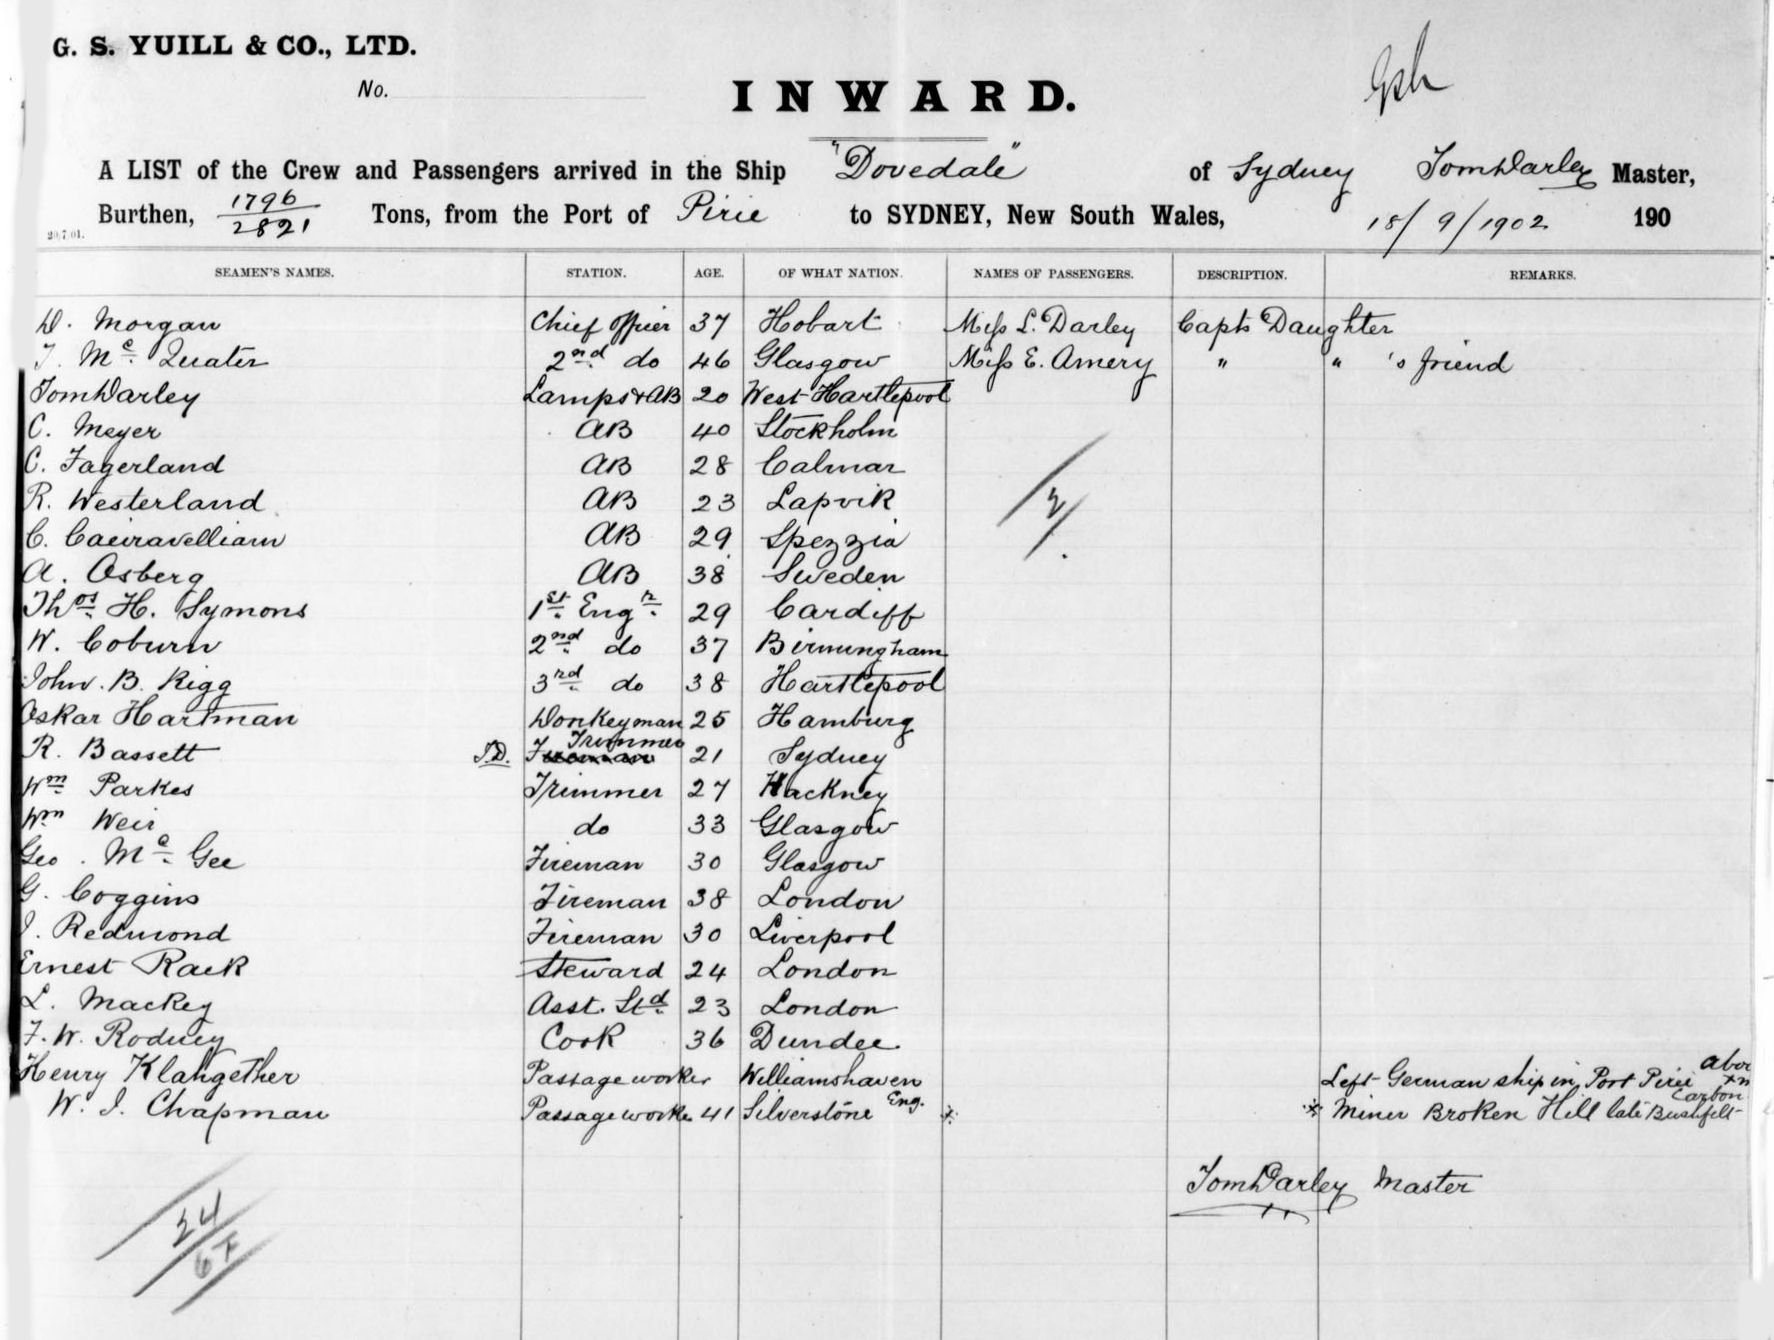 G. S. YUILL & CO., LTD.
No.
INWARD.
A LIST of the Crew and Passengers arrived in the Ship "Dovedale" of Sydney Tom Darley Master,
Burthen, 1796/2821 Tons, from the Port of Pirie to SYDNEY, New South Wales, 18/9/1902 190
20.7.01.
SEAMEN'S NAMES. STATION. AGE. OF WHAT NATION. NAMES OF PASSENGERS. DESCRIPTION. REMARKS.
D. Morgan Chief Officer 37 Hobart Miss L. Darley Capts Daughter
J. Mc Quater 2nd do 46 Glasgow Miss E. Amery " " 's friend
Tom Darley Lamps & AB 20 West Hartlepool
C. Meyer AB 40 Stockholm
C. Fagerland AB 28 Calmar
R. Westerland AB 23 Lapvik
C. AB 29 Spezzia
A. Osberg AB 38 Sweden
Thos H. Symons 1st Engr 29 Cardiff
W. Coburn 2nd do 37 Birmingham
John. B. Rigg 3rd do 38 Hartlepool
Oskar Hartman Donkeyman 25 Hamburg
R. Bassett T.D. Fireman Trimmer 21 Sydney
Wm Parkes Trimmer 27 Hackney
Wm Weir do 33 Glasgow
Geo. Mc Gee Fireman 30 Glasgow
G. Coggins Fireman 38 London
J. Redmond Fireman 30 Liverpool
Ernest Rack Steward 24 London
L. Mackey Asst. Std 23 London
F. W. Rodney Cook 36 Dundee
Henry Klangether Passage worker Williamshaven Left German ship in Port Pirie
W. J. Chapman Passage worke 41 Silverstone Eng. x x Miner Broken Hill late
Tom Darley Master
2
24
67